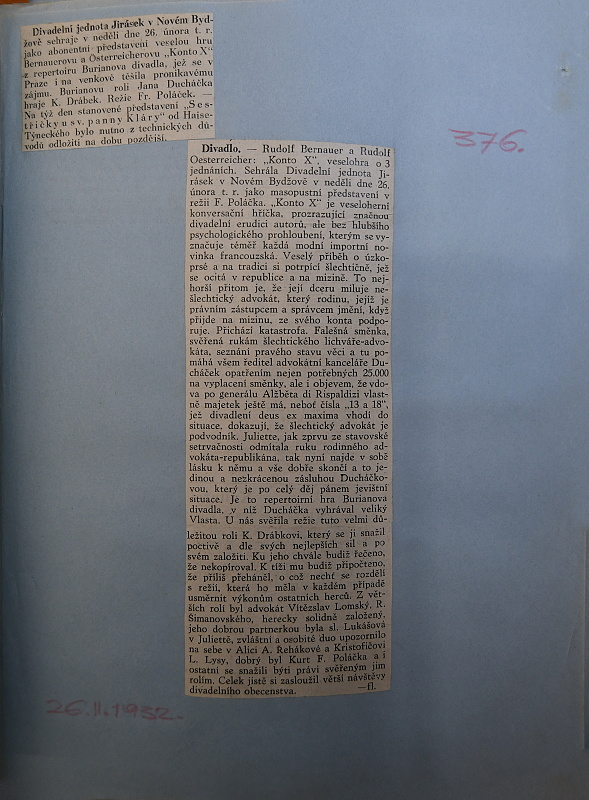 Divadelní jednota Jirásek v Novém Byd-
žově sehraje v neděli dne 26. února t. r.
jako abonentní představení veselou hru
Bernauerovu a Österreicherovu „Konto X“
z repertoiru Burianova divadla, jež se v
Praze i na venkově těšila pronikavému
zájmu. Burianovu roli Jana Ducháčka
hraje K. Drábek. Režie Fr. Poláček. —
Na týž den stanovené představení „Ses-
třičky u sv. panny Kláry“ od Haise-
Týneckého bylo nutno z technických dů-
vodů odložiti na dobu pozdější.
376.
Divadlo. — Rudolf Bernauer a Rudolf
Oesterreicher: „Konto X“, veselohra o 3
jednáních. Sehrála Divadelní jednota Ji-
rásek v Novém Bydžově v neděli dne 26.
února t. r. jako masopustní představení v
režii F. Poláčka. „Konto X“ je veseloherní
konversační hříčka, prozrazující značnou
divadelní erudici autorů, ale bez hlubšího
psychologického prohloubení, kterým se vy-
značuje téměř každá modní importní no-
vinka francouzská. Veselý příběh o úzko-
prsé a na tradici si potrpící šlechtičně, jež
se ocitá v republice a na mizině. To nej-
horší přitom je, že její dceru miluje ne-
šlechtický advokát, který rodinu, jejíž je
právním zástupcem a správcem jmění, když
přijde na mizinu, ze svého konta podpo-
ruje. Přichází katastrofa. Falešná směnka,
svěřená rukám šlechtického lichváře-advo-
káta, seznání pravého stavu věci a tu po-
máhá všem ředitel advokátní kanceláře Du-
cháček opatřením nejen potřebných 25.000
na vyplacení směnky, ale i objevem, že vdo-
va po generálu Alžběta di Rispaldizi vlast-
ně majetek ještě má, neboť čísla „13 a 18“,
jež divadlení deus ex maxima vhodí do
situace, dokazují, že šlechtický advokát je
podvodník. Juliette, jak zprvu ze stavovské
setrvačnosti odmítala ruku rodinného ad-
vokáta-republikána, tak nyní najde v sobě
lásku k němu a vše dobře skončí a to je-
dinou a nezkrácenou zásluhou Ducháčko-
vou, který je po celý děj pánem jevištní
situace. Je to repertoirní hra Burianova
divadla, v níž Ducháčka vyhrával veliký
Vlasta. U nás svěřila režie tuto velmi dů-
ležitou roli K. Drábkovi, který se ji snažil
poctivě a dle svých nejlepších sil a po
svém založiti. Ku jeho chvále budiž řečeno,
že nekopíroval. K tíži mu budiž připočteno,
že příliš přeháněl, o což nechť se rozdělí
s režií, která ho měla v každém případě
usměrnit výkonům ostatních herců. Z vět-
ších rolí byl advokát Vítězslav Lomský, R.
Šimanovského, herecky solidně založený,
jeho dobrou partnerkou byla sl. Lukášová
v Juliettě, zvláštní a osobité duo upozornilo
na sebe v Alici A. Řehákové a Kristofičovi
L. Lysy, dobrý byl Kurt F. Poláčka a i
ostatní se snažili býti právi svěřeným jim
rolím. Celek jistě si zasloužil větší návštěvy
divadelního obecenstva. —fl.
26.II.1932.